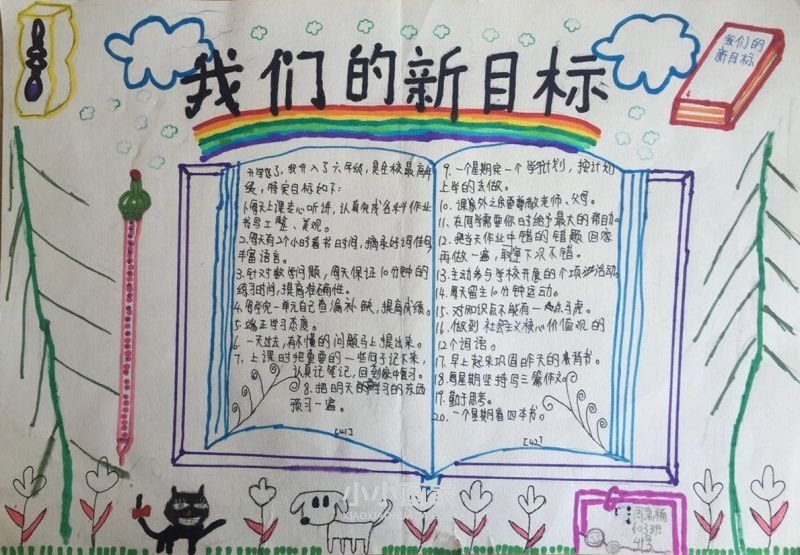 我们的新目标
我们的
新目标
开学了,我升入了六年级,是全校最高年
级,特定目标如下:
1.每天上课专心听讲,认真完成各科作业
书写工整、美观。
2.每天有2个小时看书时间,摘录好词佳句
丰富语言。
3.针对数学问题,每天保证10分钟的
练习时间,提高准确性。
4.每学完一单元自己查漏补缺,提高成绩。
5.端正学习态度。
6.一天过去,有不懂的问题马上提出来。
7.上课时把重要的一些句子记下来,
认真记笔记,回到家中复习。
8.把明天的要学习的东西
预习一遍。
[41]
9.一个星期定一个学习计划,按计划
上的去做。
10.课余外之余要尊敬老师、父母。
11.在同学需要你时给予最大的帮助。
12.把当天作业中错的错题回家
再做一遍,取争下次不错。
13.主动参与学校开展的个项活动。
14.每天留出10分钟运动。
15.对知识点不能有一点马虎。
16.做到社会主义核心价值观的
12个词语。
17.早上起来巩固昨天的要背书。
18.每星期坚持写三篇作文。
19.勤于思考。
20.一个星期看四本书。
[42]
小小画家
603班
41号